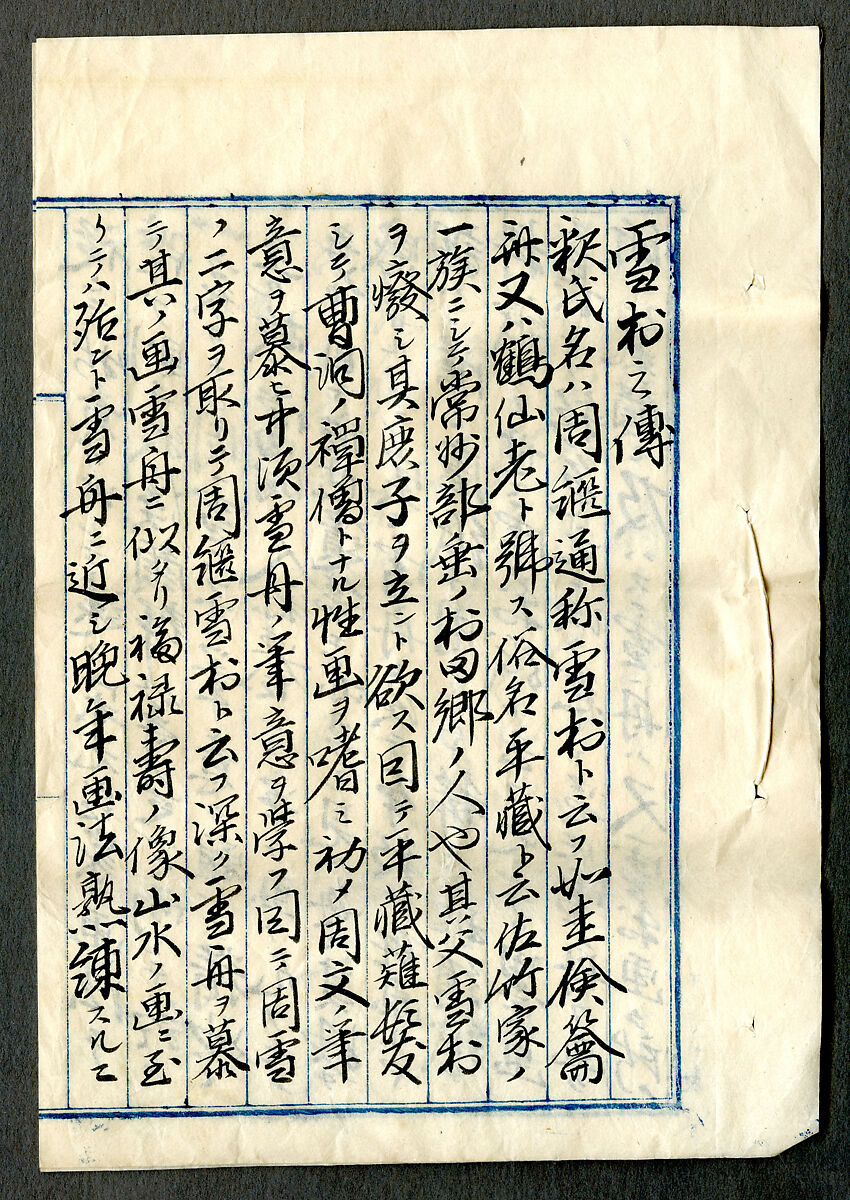 雪村之傳
釈氏名ハ周継通称雪村ト云フ如圭倹籥
舟又ハ鶴仙老ト號ス俗名平藏ト云佐竹家ノ
一族ニシテ常州部垂ノ村田郷ノ人也其父雪村
ヲ癈シ其庶子ヲ立ント欲ス因テ平藏薙髪
シテ曹洞ノ禪僧トナル性画ヲ嗜ミ初メ周文ノ筆
意ヲ慕ヒ中頃雪舟ノ筆意ヲ学フ因テ周雪
ノ二字ヲ取リテ周継雪村ト云フ深ク雪舟ヲ慕
テ其ノ画雪舟ニ似タリ福禄壽ノ像山水ノ画ニ至
リテハ殆ント雪舟ニ近シ晩年画法熟練スルニ